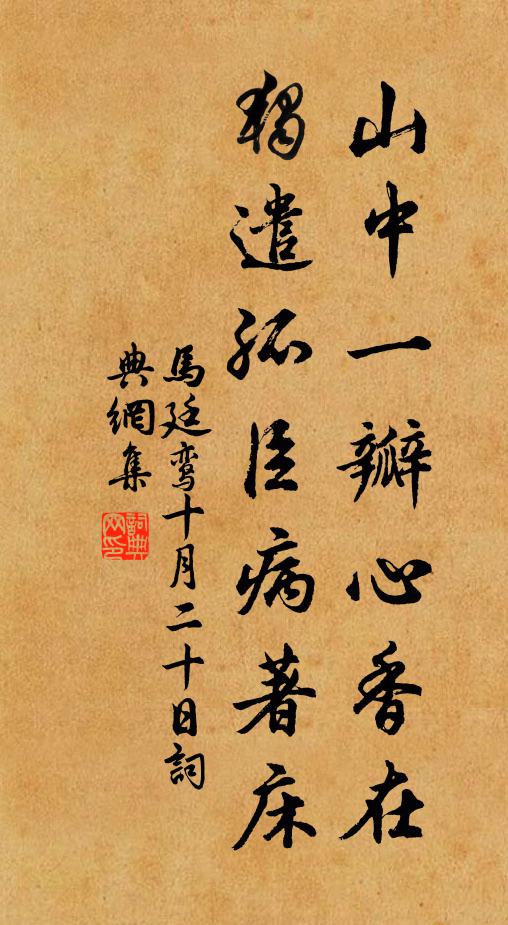 山中一瓣心香在
獨遣孤臣病著床
馬廷鸞十月二十日詞
典網集
詞典网印